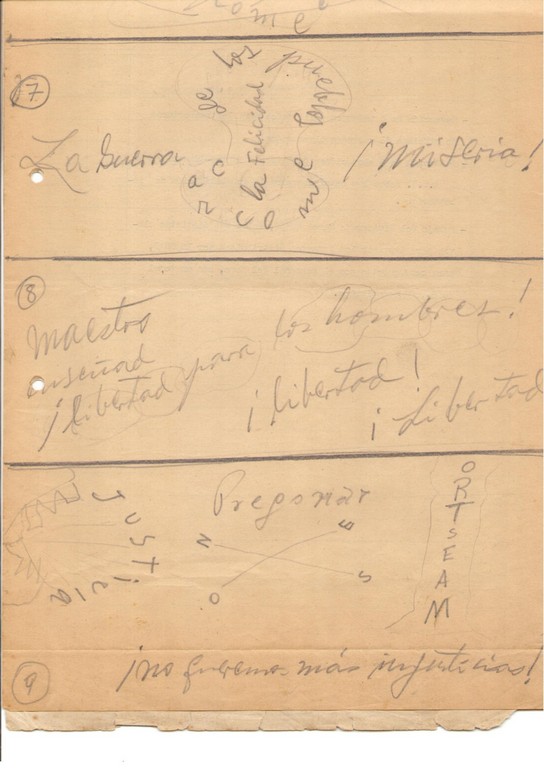 7
La Guerra
carcome
la Felicidad
de los pueblos
¡Miseria!
8
Maestro
enseñad
¡libertad para los hombres!
¡libertad!
¡Libertad
Justicia
Pregonar
N E
O S
ORTSEAM
9
¡no queremos más injusticias!